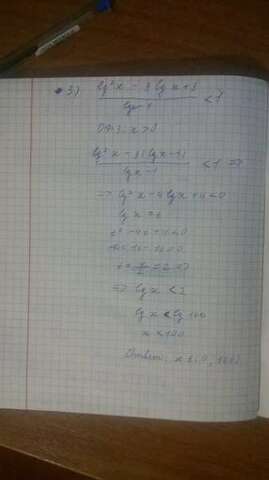 3) lg²x - 3 lg x + 3
lg x - 1 < 1
ОДЗ: x > 0
lg²x - 3(lg x - 1)
lg x - 1 < 1 =>
=> lg²x - 4 lg x + 4 < 0
lg x = t
t² - 4t + 4 < 0
=> lg x < 2
lg x < lg 100
x < 100
Ответ: x ∈ (0; 100)